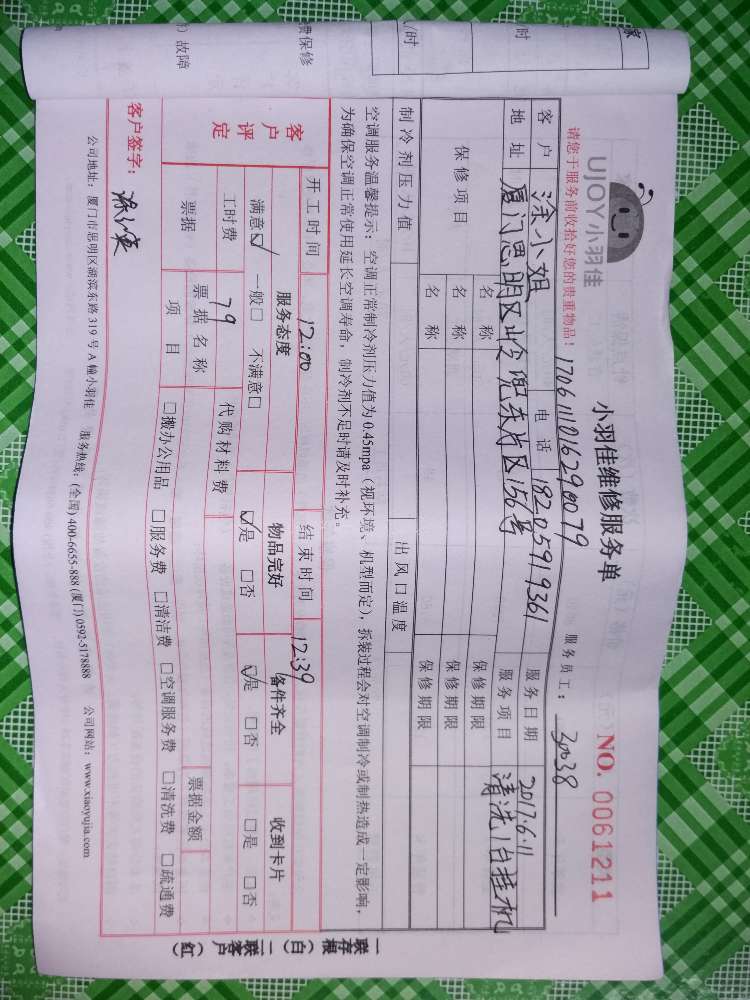 UJOY小羽佳
小羽佳维修服务单
NO. 0061211
请您于服务前收拾好您的贵重物品!
170611016290079
服务员工: 30038
客户 涂小姐 电话 18205919361 服务日期 2017.6.11
地址 厦门思明区岭兜东片区156号 服务项目 清洗1台挂机
保修项目 名称 保修期限
名称 保修期限
名称 保修期限
制冷剂压力值 出风口温度
空调服务温馨提示: 空调正常制冷剂压力值为 0.45mpa (视环境、机型而定), 拆装过程会对空调制冷或制热造成一定影响,
为确保空调正常使用延长空调寿命, 制冷剂不足时请及时补充。
客户评定
开工时间 12:00 结束时间 12:39
服务态度 物品完好 备件齐全 收到卡片
满意☑ 一般□ 不满意□ ☑是 □否 ☑是 □否 □是 □否
工时费 79 代购材料费
票据 票据名称 票据金额
项目 □搬办公用品 □服务费 □清洁费 □空调服务费 □清洗费 □疏通费
客户签字:
公司地址: 厦门市思明区湖滨东路 319 号 A 幢小羽佳 服务热线: (全国) 400-6655-888 (厦门) 0592-5178888 公司网站: www.xiaoyujia.com
一联存根(白) 二联客户(红)
家
时
/时
费保修
) 故障